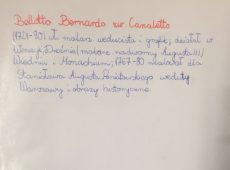 Belotto Bernardo zw. Canaletto
(1721-80) wł. malarz weducista i grafik; działał w
Wenecji, Dreźnie (malarz nadworny Augusta III)
Wiedniu i Monachium; 1767-80 malował dla
Stanisława Augusta Poniatowskiego weduty
Warszawy i obrazy historyczne.